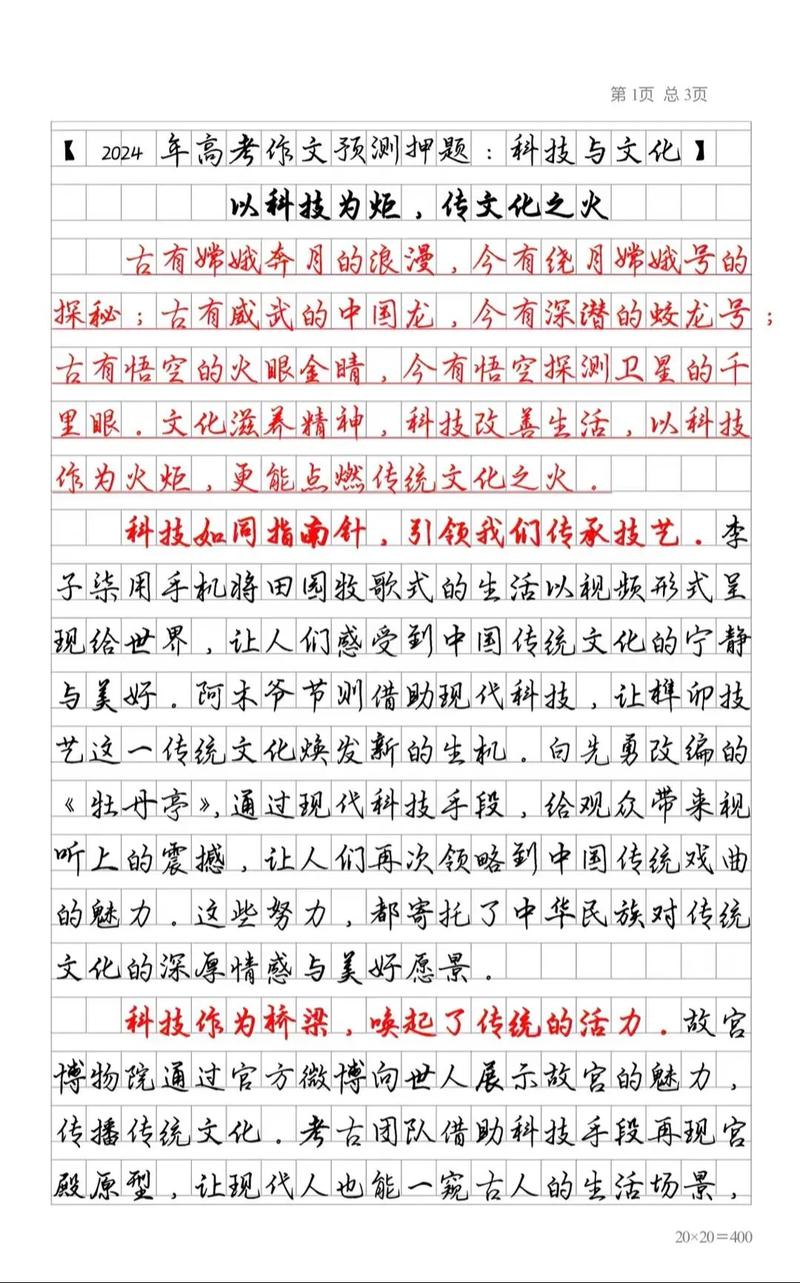 第1页 总3页
【 2024 年高考作文预测押题：科技与文化】
以科技为炬，传文化之火
古有嫦娥奔月的浪漫，今有绕月嫦娥号的
探秘；古有威武的中国龙，今有深潜的蛟龙号；
古有悟空的火眼金睛，今有悟空探测卫星的千
里眼。文化滋养精神，科技改善生活，以科技
作为火炬，更能点燃传统文化之火。
科技如同指南针，引领我们传承技艺。李
子柒用手机将田园牧歌式的生活以视频形式呈
现给世界，让人们感受到中国传统文化的宁静
与美好。阿木爷爷则借助现代科技，让榫卯技
艺这一传统文化焕发新的生机。向先勇改编的
《牡丹亭》，通过现代科技手段，给观众带来视
听上的震撼，让人们再次领略到中国传统戏曲
的魅力。这些努力，都寄托了中华民族对传统
文化的深厚情感与美好愿景。
科技作为桥梁，唤起了传统的活力。故宫
博物院通过官方微博向世人展示故宫的魅力，
传播传统文化。考古团队借助科技手段再现宫
殿原型，让现代人也能一窥古人的生活场景，
20×20＝400